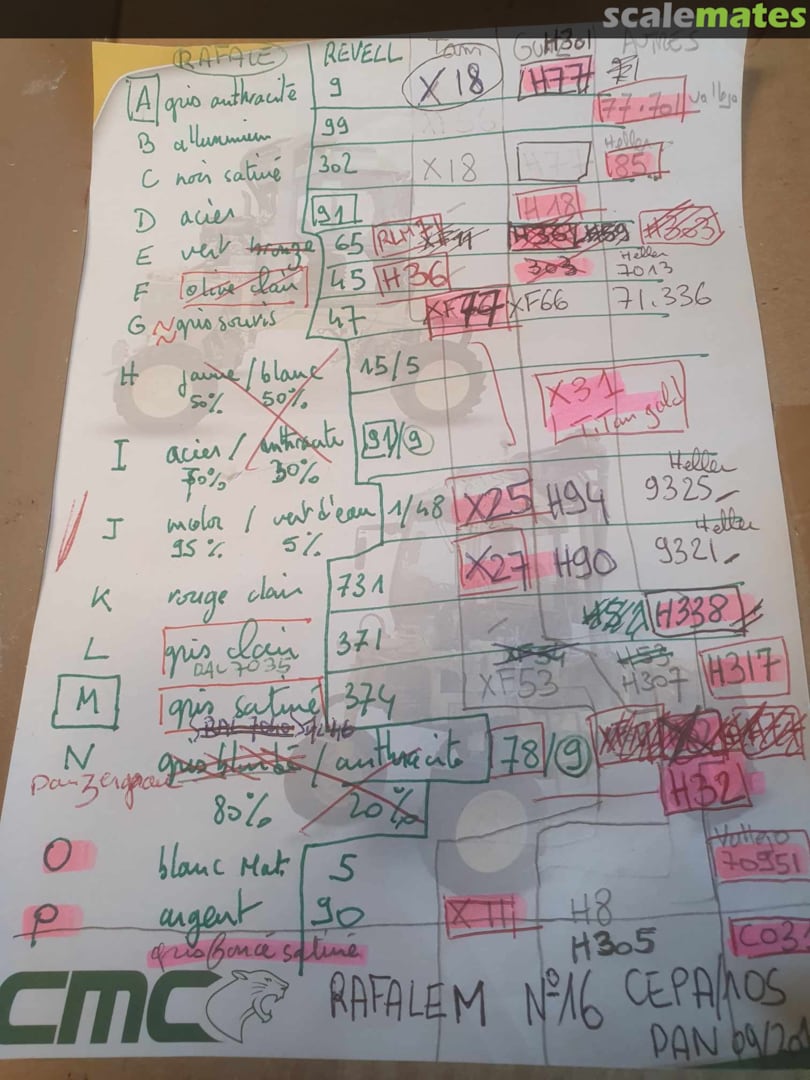 scalemates
RAFALE REVELL Tam H301 AUTRES
A gris anthracité 9 X18 H77
77.701 Vallejo
B alluminium 99
C noir satiné 302 X18 H77 Heller 85
D acier 91 H18
E vert 65 RLM H303
F olive clair 45 H36 303 Heller 7013
G ~gris souris 47 XF77 XF66 71.336
H jaune/blanc 15/5 X31
50% 50% Titan gold
I acier/anthracite 91/9
70% 30%
J molor / vert d'eau 1/48 X25 H94 Heller 9325
95% 5%
K rouge clair 731 X27 H90 Heller 9321
L gris clair 371 H338
RAL 7035
M gris satiné 374 XF53 H53 H307 H317
N gris bleuté / anthracite 78/9
Panzergrau H32
80% 20%
O blanc Mat 5 Vallejo 70951
P argent 90 X11 H8
gris foncé satiné H305 C033
CMC RAFALE M N°16 CEPA/10S
PAN 09/20